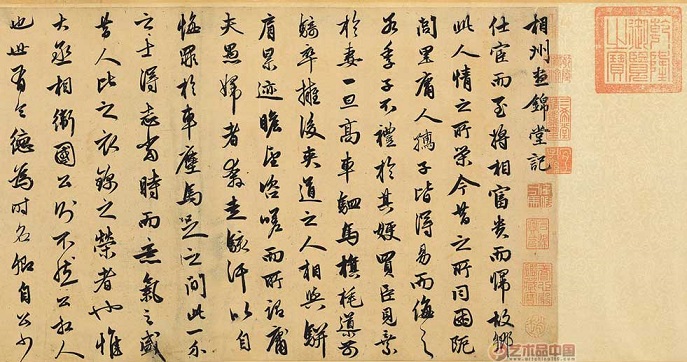 相州昼錦堂記
仕宦而至將相富貴而歸故鄉
此人情之所榮今昔之所同困阨
閭里庸人孺子皆得易而侮之
若季子不禮於其嫂買臣見棄
於妻一旦高車駟馬旗旄導前
騎卒擁後夾道之人相與駢
肩累迹瞻望咨嗟而所謂庸
夫愚婦者奔走駭汗以自
悔罪於車塵馬足之間此一介
之士得志當時而意氣之盛
昔人比之衣錦之榮者也惟
大丞相衛國公則不然公相人
也世有令德為時名卿自公少
乾隆御覽之寶
艺术品中国